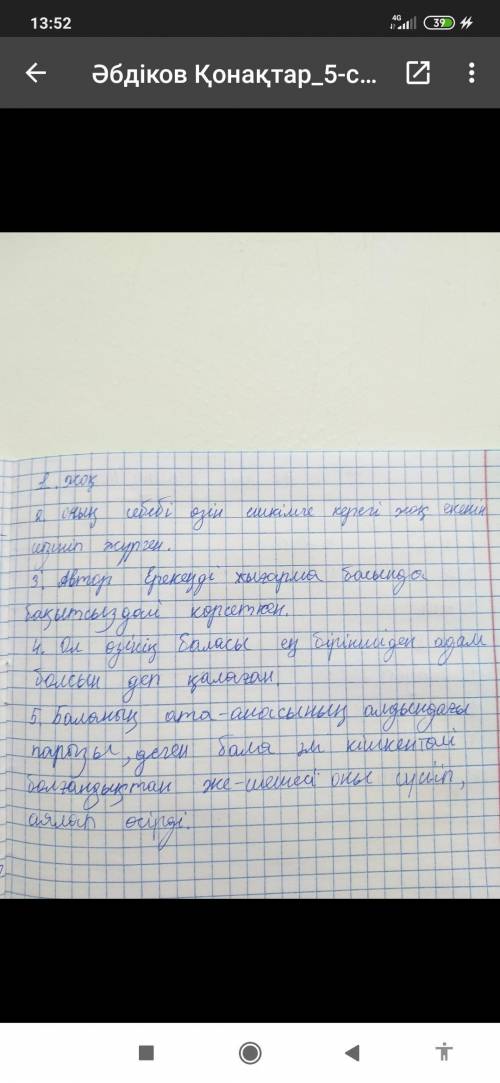 13:52
4G
39
Әбдіков Қонақтар_5-с...
1. жоқ
2. оның себебі өзін ешкімге керегі жоқ екенін
түсініп жүрген.
3. Автор Ерекеңді шығарма басында
бақытсыздай көрсеткен.
4. Ол өзінің баласы ең біріншіден адам
болсын деп қалаған.
5. Баланың ата-анасының алдындағы
парызы, деген бала әлі кішкентай
болғандықтан әке-шешесі оны сүйіп,
аялап өсірді.